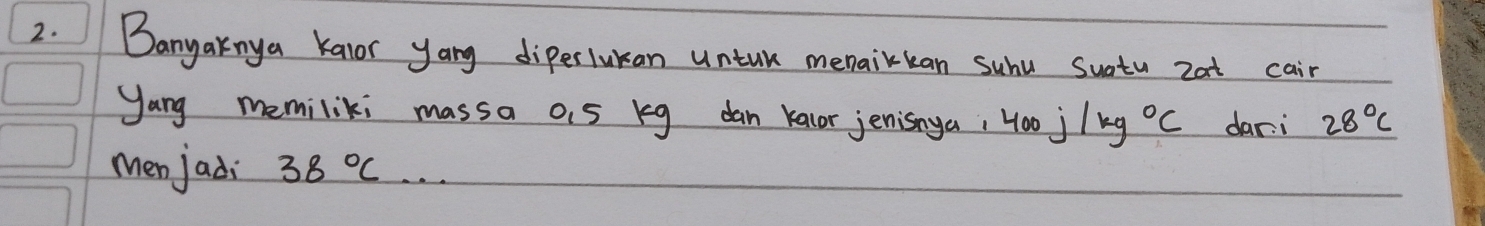 2. Banyaknya kalor yang diperlukan untuk menaikkan suhu suatu zat cair
yang memiliki massa 0,5 kg dan kalor jenisnya, 400 j/kg °C dari 28°C
menjadi 38 °C...